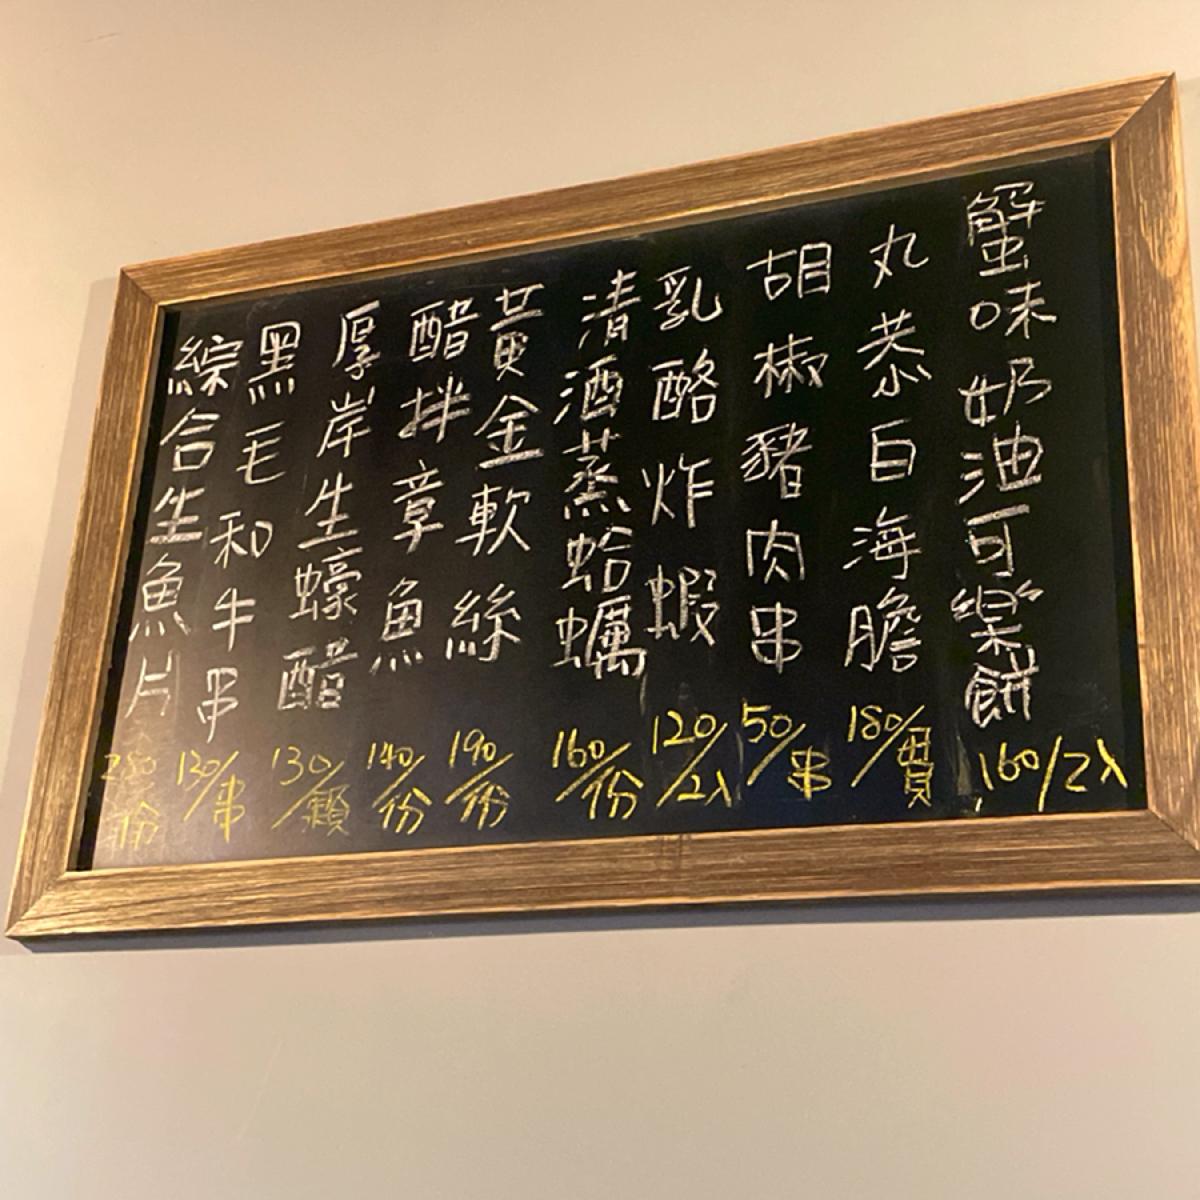 蟹味奶油可樂餅 160/2入
丸恭白海膽 180/貫
胡椒豬肉串 50/串
乳酪炸蝦 120/2入
清酒蒸蛤蠣 160/份
黃金軟絲 190/份
醋拌章魚 140/份
厚岸生蠔醋 130/顆
黑毛和牛串 130/串
綜合生魚片 280/份